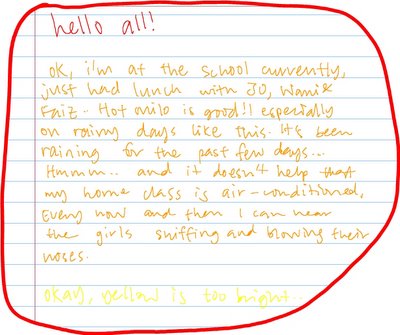 hello all!
OK, i'm at the school currently,
just had lunch with JO, Wani &
Faiz.. Hot milo is good!! especially
on rainy days like this. It's been
raining for the past few days...
Hmmm.. and it doesn't help that
my home class is air-conditioned,
Every now and then I can hear
the girls sniffing and blowing their
noses.
okay, yellow is too bright...